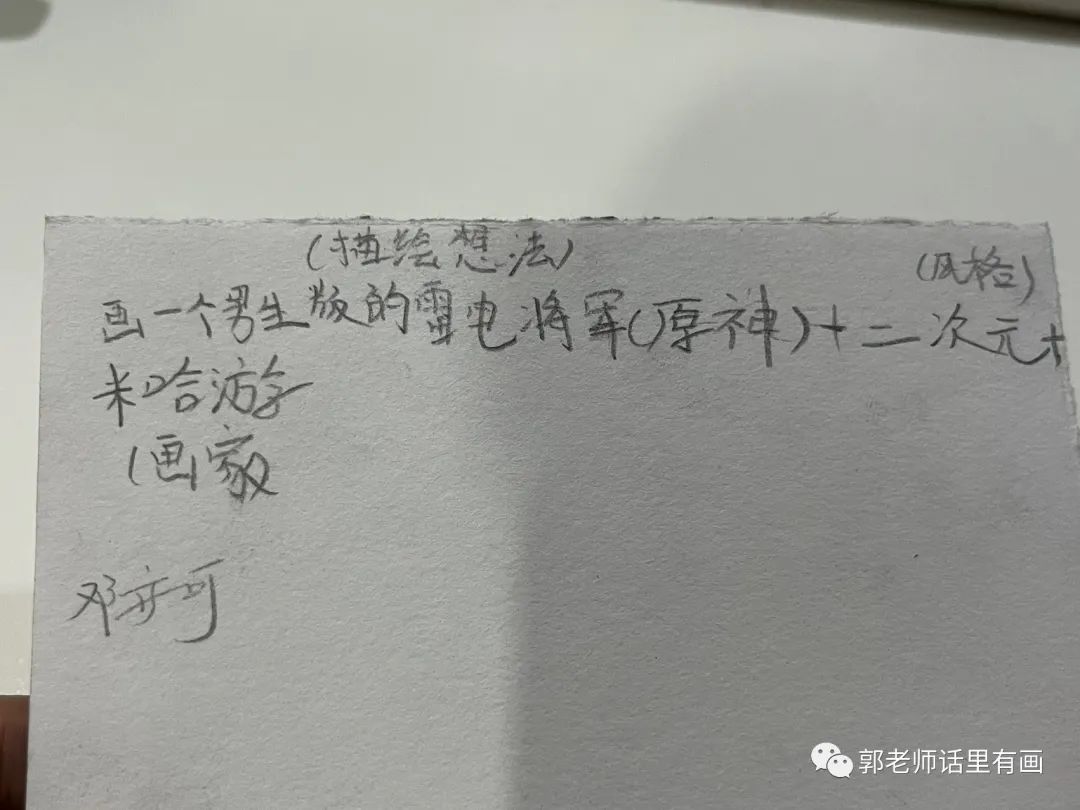 (描绘想法)
(风格)
画一个男生版的雷电将军(原神)+二次元+
米哈游
(画家
邓亦可
郭老师话里有画